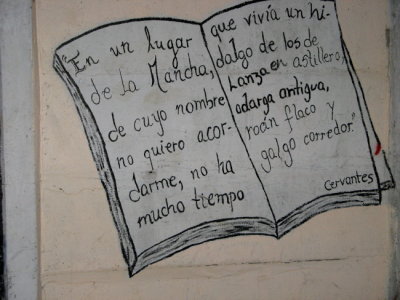 "En un lugar
de la Mancha,
de cuyo nombre
no quiero acor-
darme, no ha
mucho tiempo
que vivía un hi-
dalgo de los de
Lanza en astillero,
adarga antigua,
rocín flaco y
galgo corredor."
Cervantes